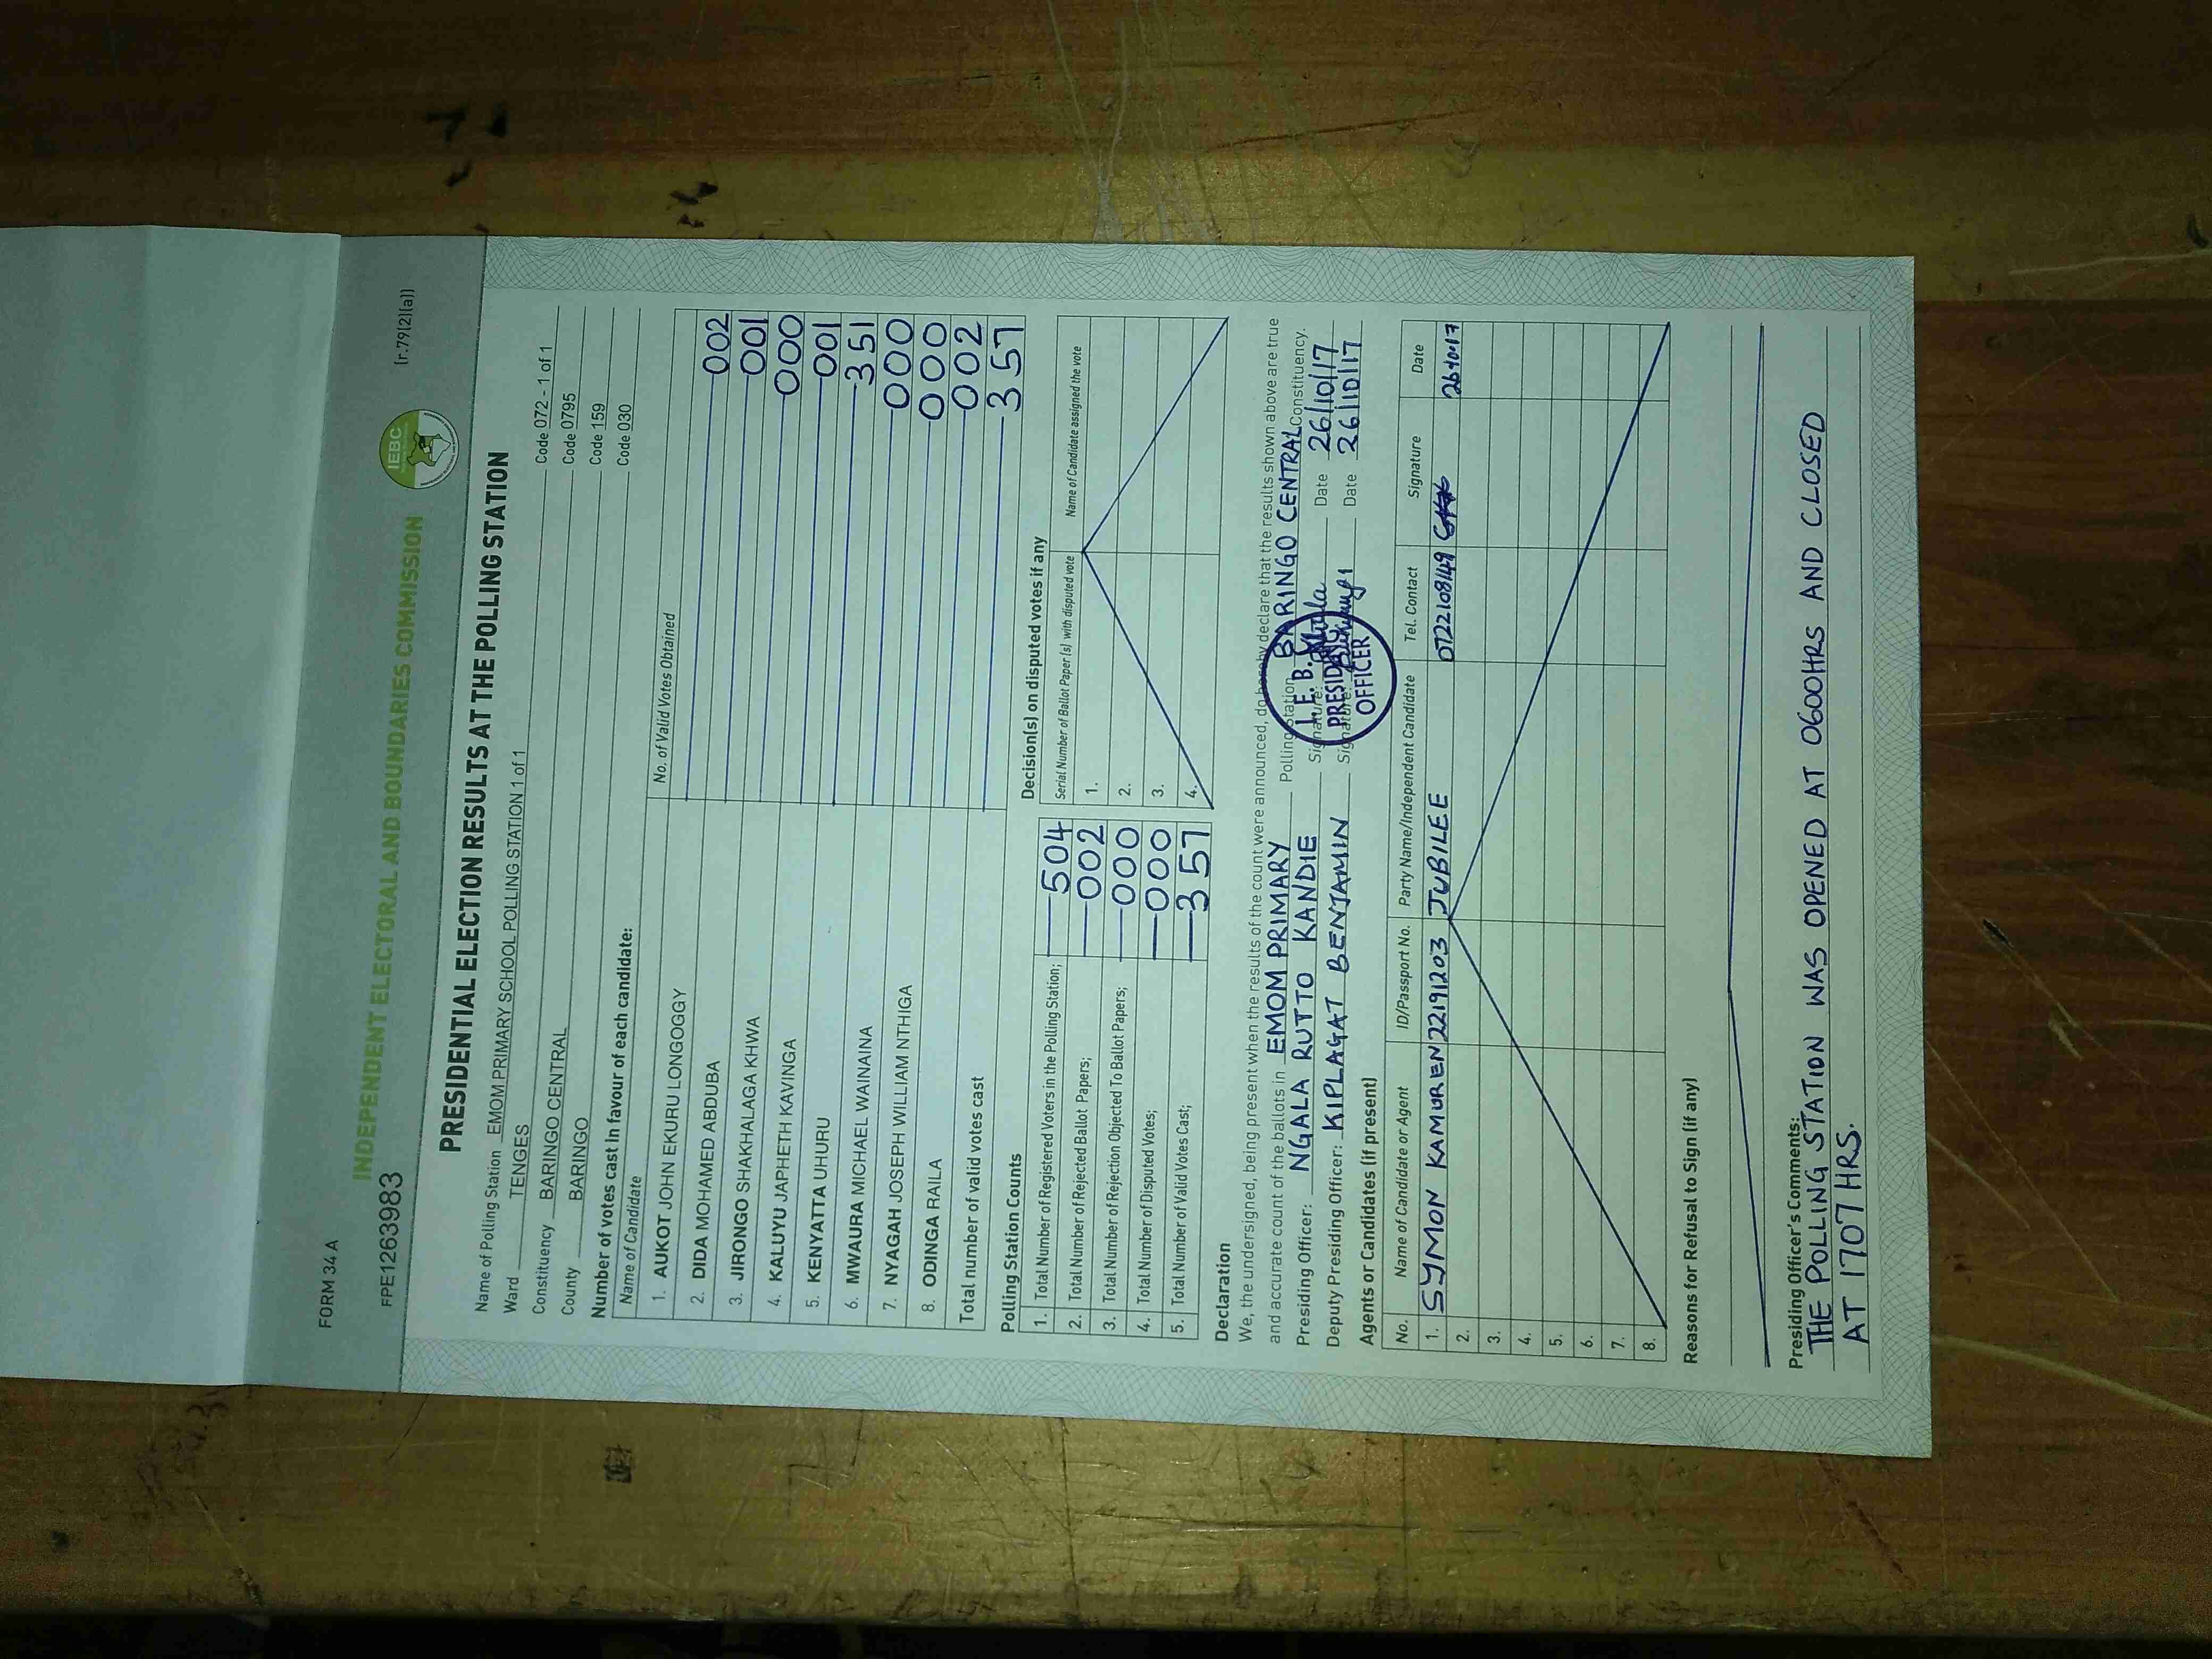 FORM 34 A
(r.79(2)(a))
INDEPENDENT ELECTORAL AND BOUNDARIES COMMISSION
IEBC
FPE1263983
PRESIDENTIAL ELECTION RESULTS AT THE POLLING STATION
Name of Polling Station EMOM PRIMARY SCHOOL POLLING STATION 1 of 1 Code 072 - 1 of 1
Ward TENGES Code 0795
Constituency BARINGO CENTRAL Code 159
County BARINGO Code 030
Number of votes cast in favour of each candidate:
Name of Candidate No. of Valid Votes Obtained
1. AUKOT JOHN EKURU LONGOGGY 002
2. DIDA MOHAMED ABDUBA 001
3. JIRONGO SHAKHALAGA KHWA 000
4. KALUYU JAPHETH KAVINGA 001
5. KENYATTA UHURU 351
6. MWAURA MICHAEL WAINAINA 000
7. NYAGAH JOSEPH WILLIAM NTHIGA 000
8. ODINGA RAILA 002
Total number of valid votes cast 357
Polling Station Counts
1. Total Number of Registered Voters in the Polling Station; 504
2. Total Number of Rejected Ballot Papers; 002
3. Total Number of Rejection Objected To Ballot Papers; 000
4. Total Number of Disputed Votes; 000
5. Total Number of Valid Votes Cast; 357
Decision(s) on disputed votes if any
Serial Number of Ballot Paper(s) with disputed vote Name of Candidate assigned the vote
1.
2.
3.
4.
Declaration
We, the undersigned, being present when the results of the count were announced, do hereby declare that the results shown above are true
and accurate count of the ballots in EMOM PRIMARY Polling Station BARINGO CENTRAL Constituency.
Presiding Officer: NGALA RUTTO KANDIE Signature: Date 26/10/17
Deputy Presiding Officer: KIPLAGAT BENJAMIN Signature: Date 26/10/17
I. E. B. C
PRESIDING
OFFICER
Agents or Candidates (if present)
No. Name of Candidate or Agent ID/Passport No. Party Name/Independent Candidate Tel. Contact Signature Date
1. SYMON KAMUREN 22191203 JUBILEE 0722108149 26-10-17
2.
3.
4.
5.
6.
7.
8.
Reasons for Refusal to Sign (if any)
Presiding Officer's Comments:
THE POLLING STATION WAS OPENED AT 0600HRS AND CLOSED
AT 1707 HRS.